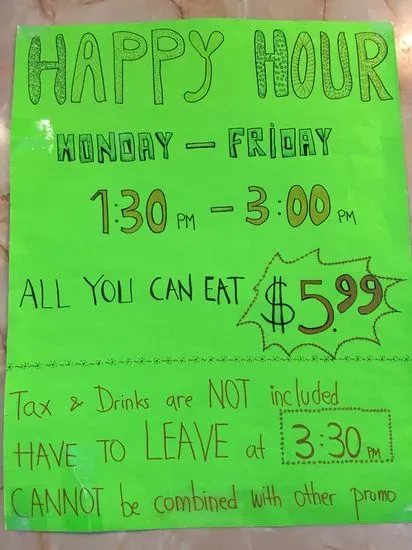 HAPPY HOUR
MONDAY – FRIDAY
1:30 PM – 3:00 PM
ALL YOU CAN EAT $5.99
Tax & Drinks are NOT included
HAVE TO LEAVE at 3:30 PM
CANNOT be combined with other promo